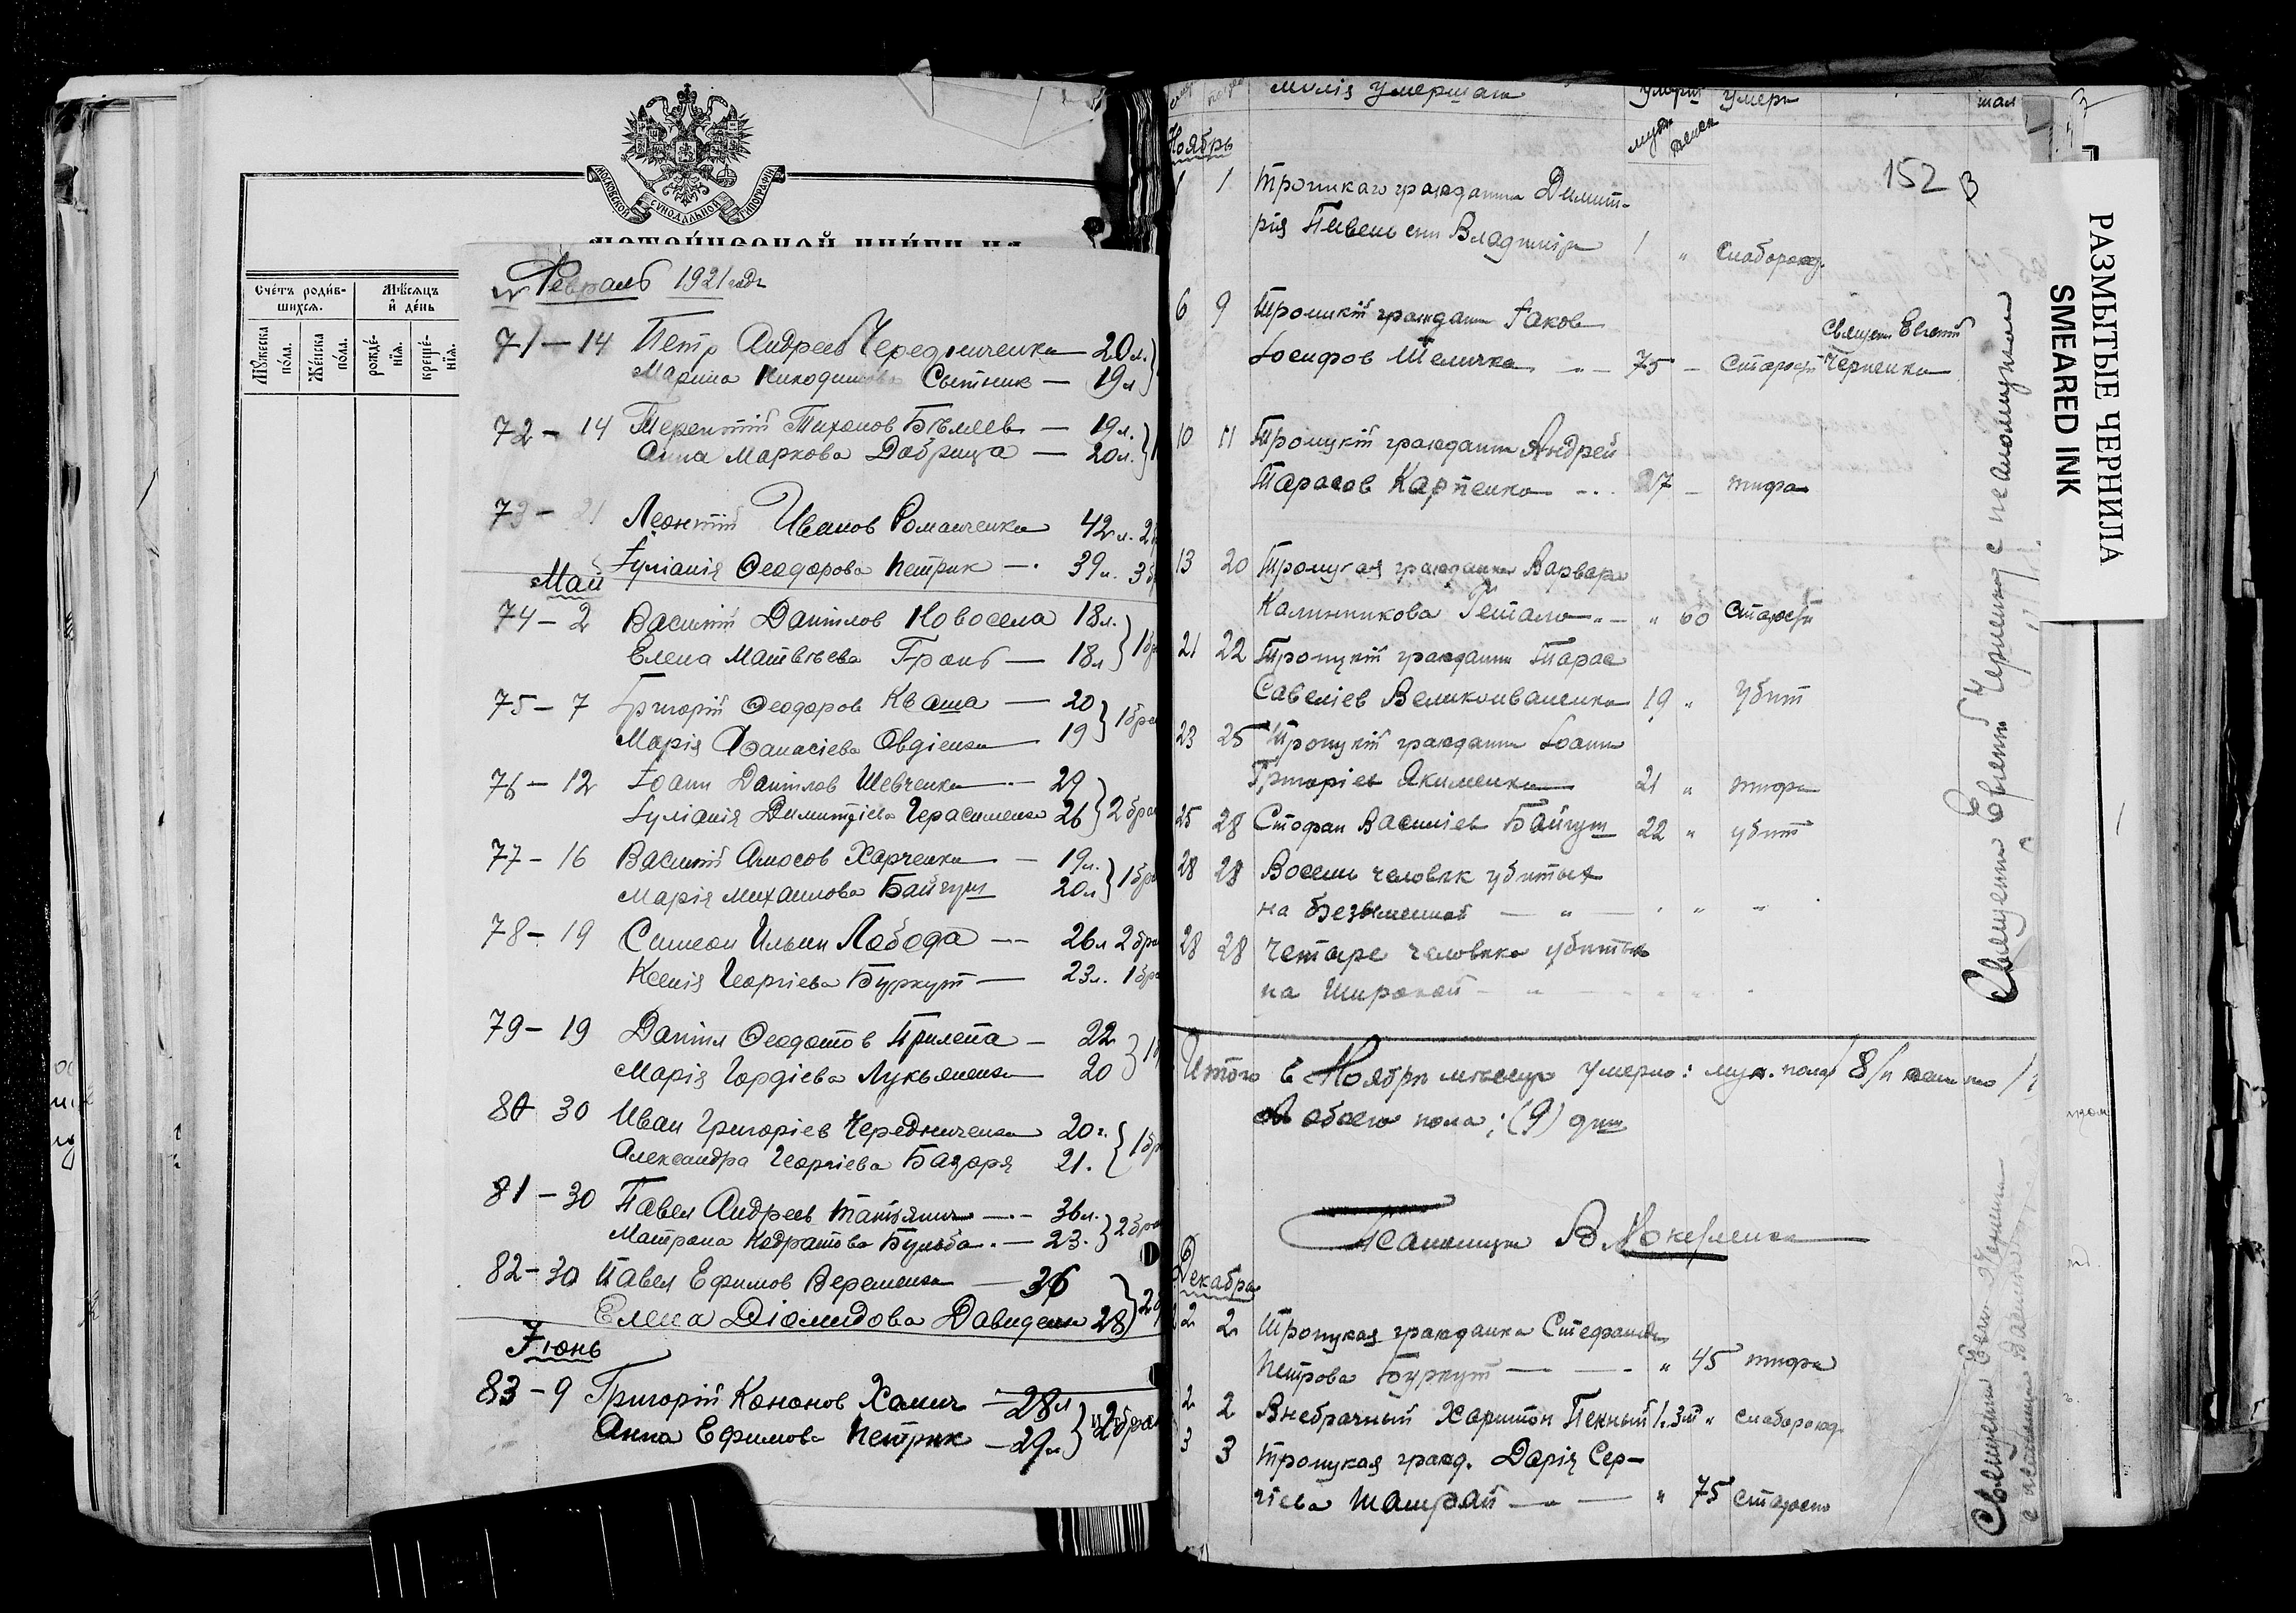 МОСКОВСКОЙ СѴНОДАЛЬНОЙ ТИПОГРАФІИ
Счетъ родив-
шихся.
Мѣсяцъ
и день
Мужеска
пола.
Женска
пола.
рожде-
нія.
креще-
нія.
Февраль 1921 года
71 – 14 Петр Андреев Чередниченко – 20 л.
Марина Никодимова Сытник – 19 л
72 – 14 Терентій Тихонов Бѣляев – 19 л.
Анна Маркова Добрица – 20 л.
73 – 21 Леонтій Иванов Романченко 42 л. 2
Іуліанія Феодорова Петрик – 39 л. 3 б
Май
74 – 2 Василій Даніилов Новосела 18 л.
Елена Матвѣева Грань – 18 л } 1 бр
75 – 7 Григорій Феодоров Кваша – 20
Марія Афанасіева Овдіенко 19 } 1 бра
76 – 12 Іоанн Даніилов Шевченко – 29
Іуліанія Димитріева Герасименко 26 } 2 бра
77 – 16 Василій Амосов Харченко – 19 л.
Марія Михаилова Байгуш 20 л } 1 бра
78 – 19 Симеон Ильин Лобода – 26 л 2 бра
Ксенія Георгіева Буркут – 23 л. 1 бра
79 – 19 Даніил Феодотов Прилепа – 22
Марія Гордіева Лукьяненко 20 } 1
80 30 Иван Григоріев Чередниченко 20 г.
Александра Георгіева Базаря 21. } 1 бр
81 – 30 Павел Андреев Татьянич – 36 л.
Матрона Кодратова Бульба. – 23. } 2 бра
82 – 30 Павел Ефимов Веременко – 36
Елена Діомидова Давиденко 28 } 2 б
Іюнь
83 – 9 Григорій Кононов Хамич – 28 л
Анна Ефимова Петрик – 29 л } 2 бра
милія умершаго
умерш
умерл
муж
женск
Ноябрь
152
1 1 Троицкаго гражданина Димит-
рія Пивень сын Владимір 1 " слаборожд.
6 9 Троицкій гражданин Іаков
Іосифов Теличко – 75 – старости
Священ Евгеній
Черненко
10 11 Троицкій гражданин Андрей
Тарасов Карпенко – 27 – тифа
13 20 Троицкая гражданка Варвара
Калинникова Гетало – " 60 старости
21 22 Троицкій гражданин Тарас
Савеліев Великоиваненко 19 " убит
23 25 Троицкій гражданин Іоанн
Григоріев Якименко 21 " тифа
25 28 Стефан Василіев Байгуш 22 " убит
28 28 Восемь человек убитых
на безыменной – " –
28 28 Четыре человека убитых
на Широкой
Итого в Ноябре месяце умерло: муж. пола 8
обоего пола: (9) душ
Псаломщик В.
Декабрь
2 2 Троицкая гражданка Стефанида
Петрова Буркут – " 45 тифа
2 2 Внебрачный Харитон Пенный 1. " слаборожд.
3 3 Троицкая гражд. Дарія Сер-
гіева Шамрай – " 75 старости
Священник Евгеній Черненко с псаломщиком
Священник
РАЗМЫТЫЕ ЧЕРНИЛА
SMEARED INK